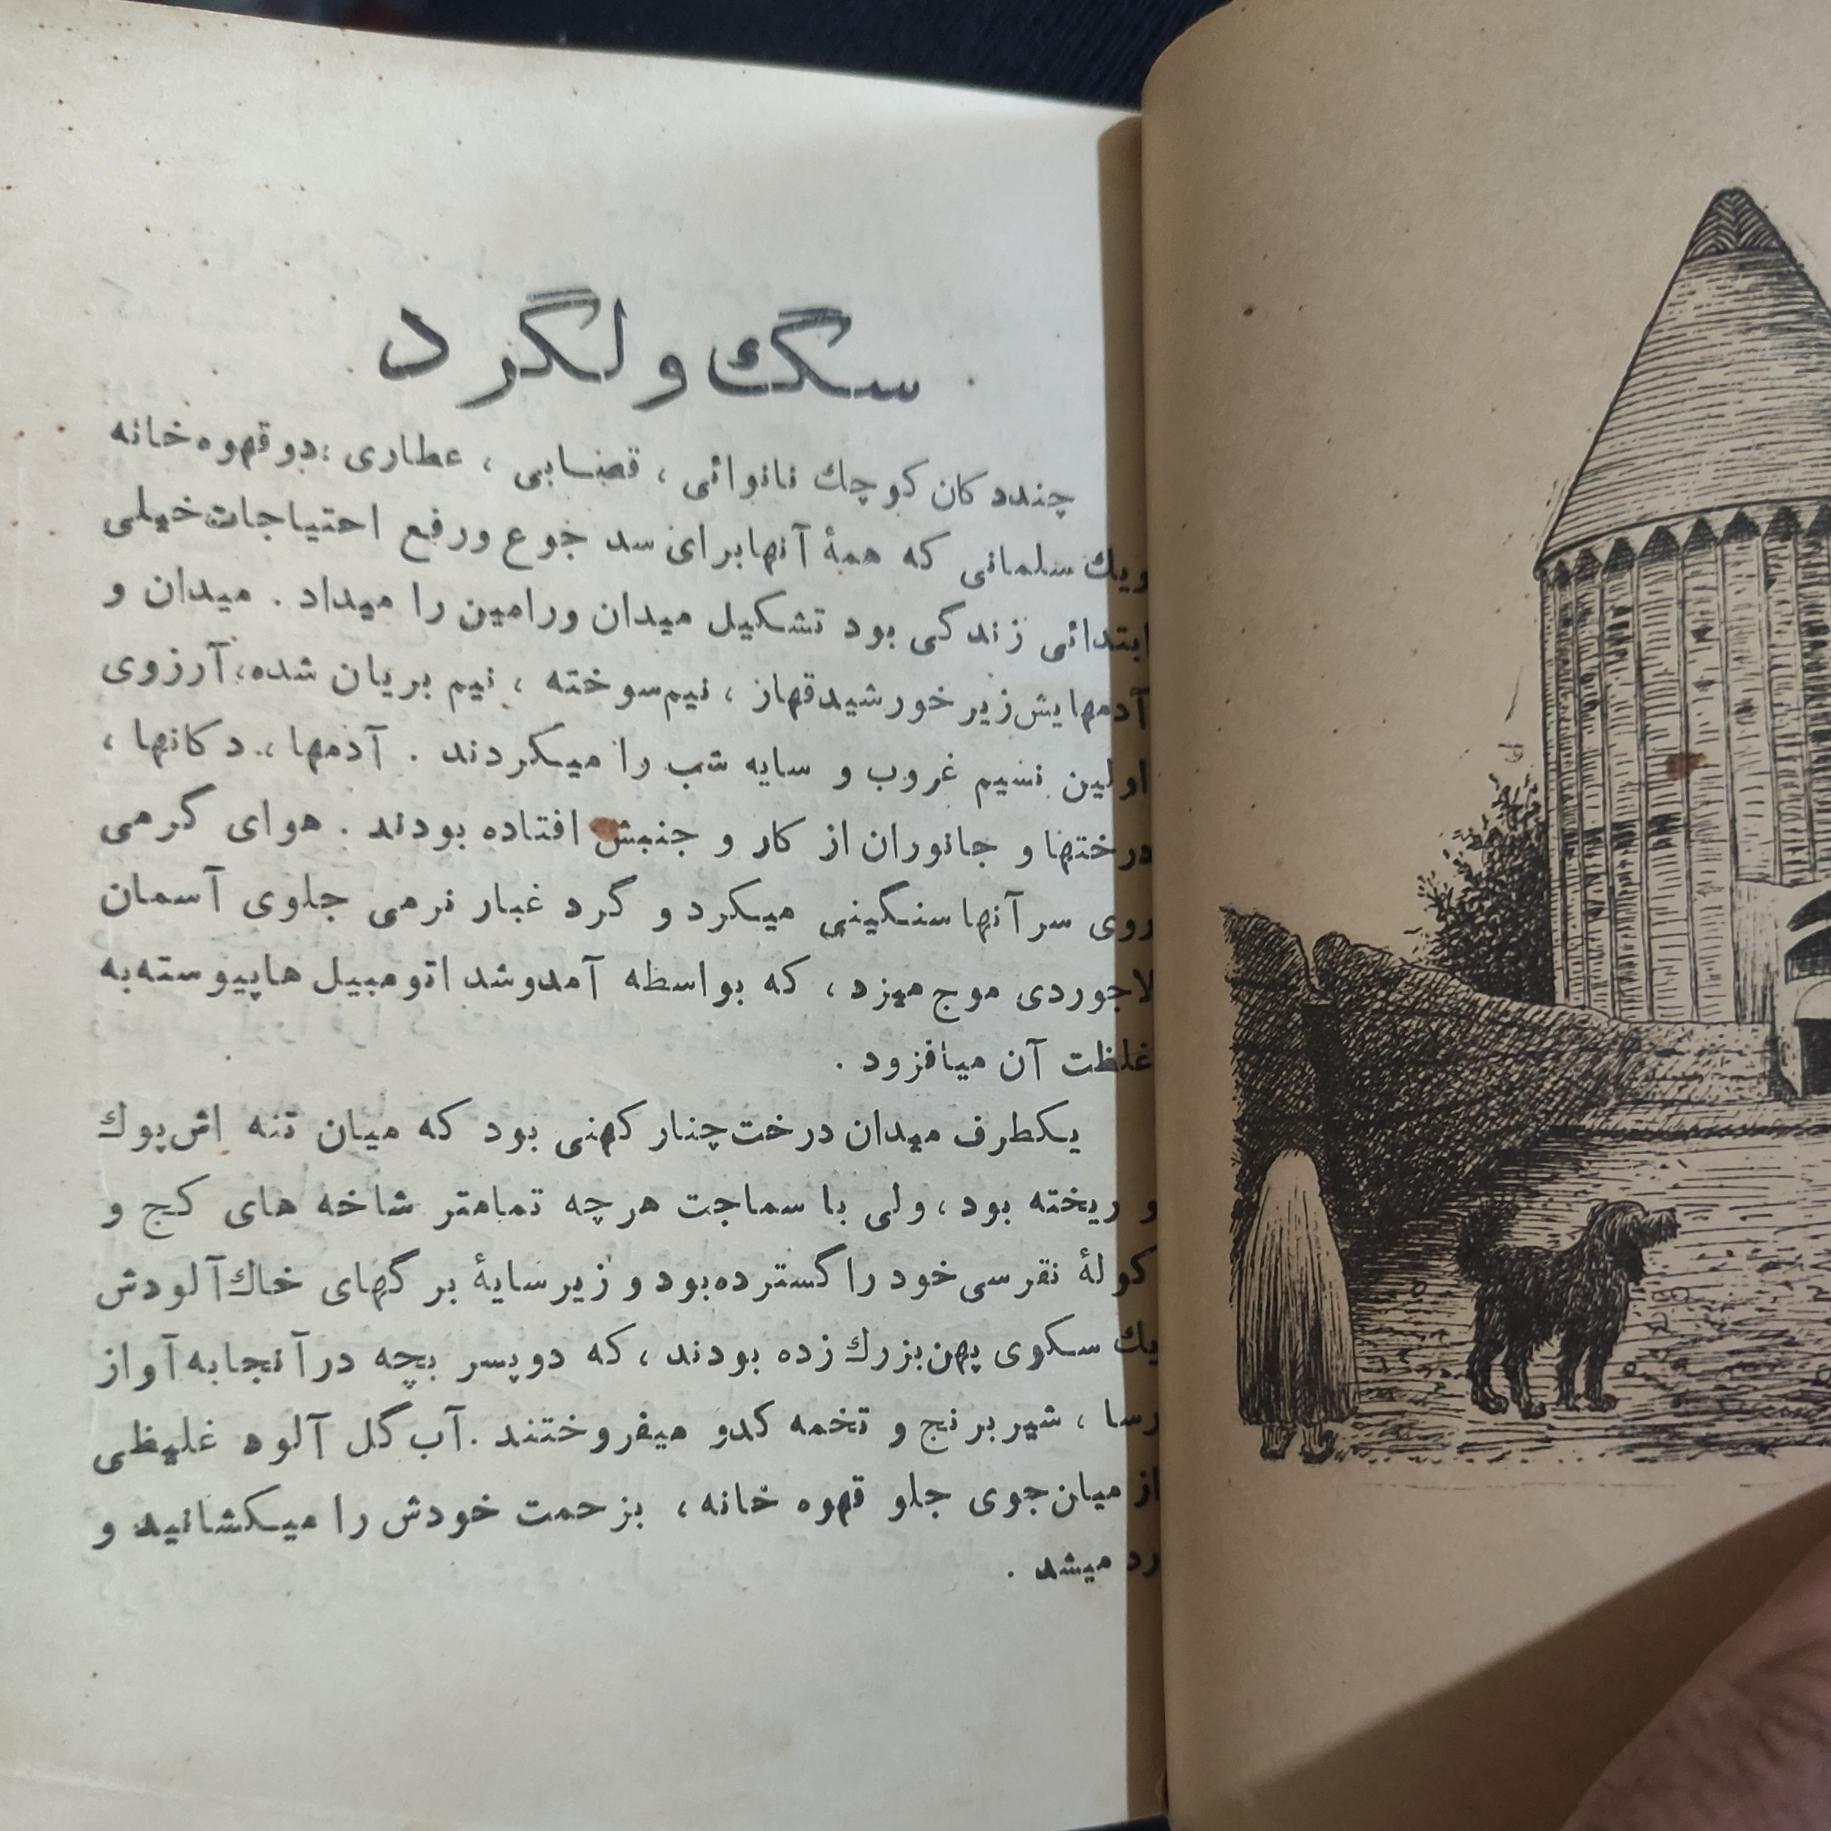 سگ ولگرد
چند دكان كوچك نانوائی ، قصابی ، عطاری ، دو قهوه خانه
ويك سلمانی كه همهٔ آنها برای سد جوع ورفع احتياجات خيلی
ابتدائی زندگی بود تشكيل ميدان ورامين را ميداد . ميدان و
آدمهايش زير خورشيد قهاز ، نيم سوخته ، نيم بريان شده، آرزوی
اولين نسيم غروب و سايه شب را ميكردند . آدمها ، دكانها ،
درختها و جانوران از كار و جنبش افتاده بودند . هوای گرمی
روی سر آنها سنگينی ميكرد و گرد غبار نرمی جلوی آسمان
لاجوردی موج ميزد ، كه بواسطه آمدوشد اتومبيل ها پيوسته به
غلظت آن ميافزود .
يكطرف ميدان درخت چنار كهنی بود كه ميان تنه اش پوك
و ريخته بود ، ولی با سماجت هرچه تمامتر شاخه های كج و
كولهٔ نقرسی خود را گسترده بود و زير سايهٔ برگهای خاك آلودش
يك سكوی پهن بزرك زده بودند ، كه دو پسر بچه در آنجا به آواز
رسا ، شير برنج و تخمه كدو ميفروختند . آب گل آلود غليظی
از ميان جوی جلو قهوه خانه ، بزحمت خودش را ميكشانيد و
رد ميشد .